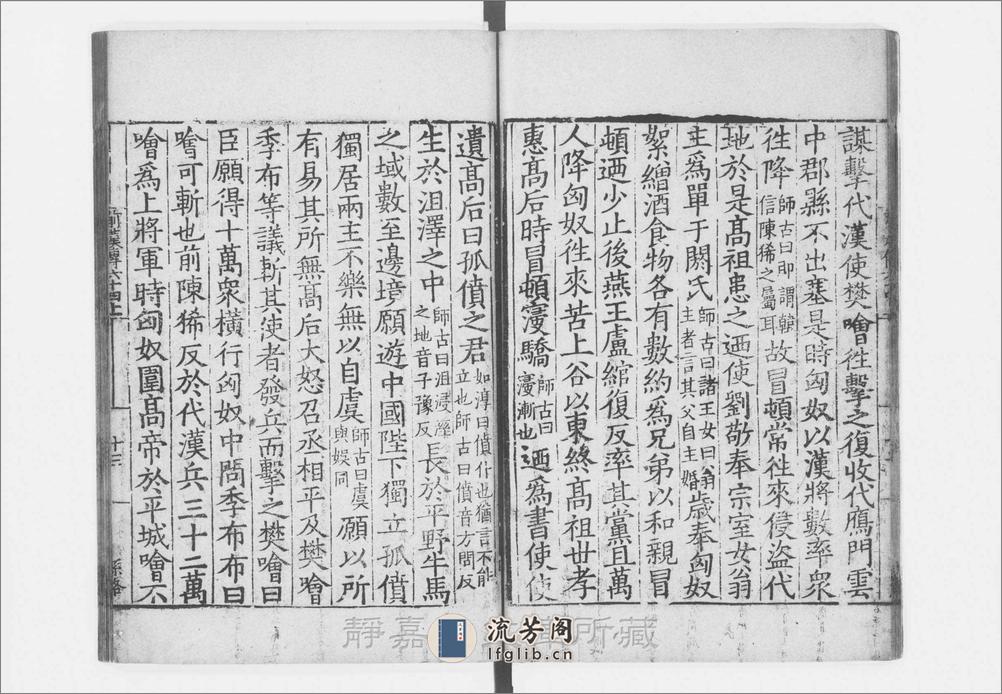 謀擊代漢使樊噲往擊之復收代鴈門雲
中郡縣不出塞是時匈奴以漢將數率衆
往降師古曰即謂韓信陳豨之屬耳故冒頓常往來侵盜代
地於是髙祖患之迺使劉敬奉宗室女翁
主爲單于閼氏師古曰諸王女曰翁主者言其父自主婚歲奉匈奴
絮繒酒食物各有數約爲兄弟以和親冒
頓迺少止後燕王盧綰復反率其黨且萬
人降匈奴往來苦上谷以東終髙祖世孝
惠髙后時冒頓寖驕師古曰寖漸也迺爲書使使
遺髙后曰孤僨之君如淳曰僨仆也猶言不能立也師古曰僨音方問反
生於沮澤之中師古曰沮浸溼之地音子豫反長於平野牛馬
之域數至邊境願遊中國陛下獨立孤僨
獨居兩主不樂無以自虞師古曰虞與娛同願以所
有易其所無髙后大怒召丞相平及樊噲
季布等議斬其使者發兵而擊之樊噲曰
臣願得十萬衆橫行匈奴中問季布布曰
噲可斬也前陳豨反於代漢兵三十二萬
噲爲上將軍時匈奴圍髙帝於平城噲不
前漢傳六十四上
十三
孫洛
靜嘉 所藏
流芳阁
lfglib.cn